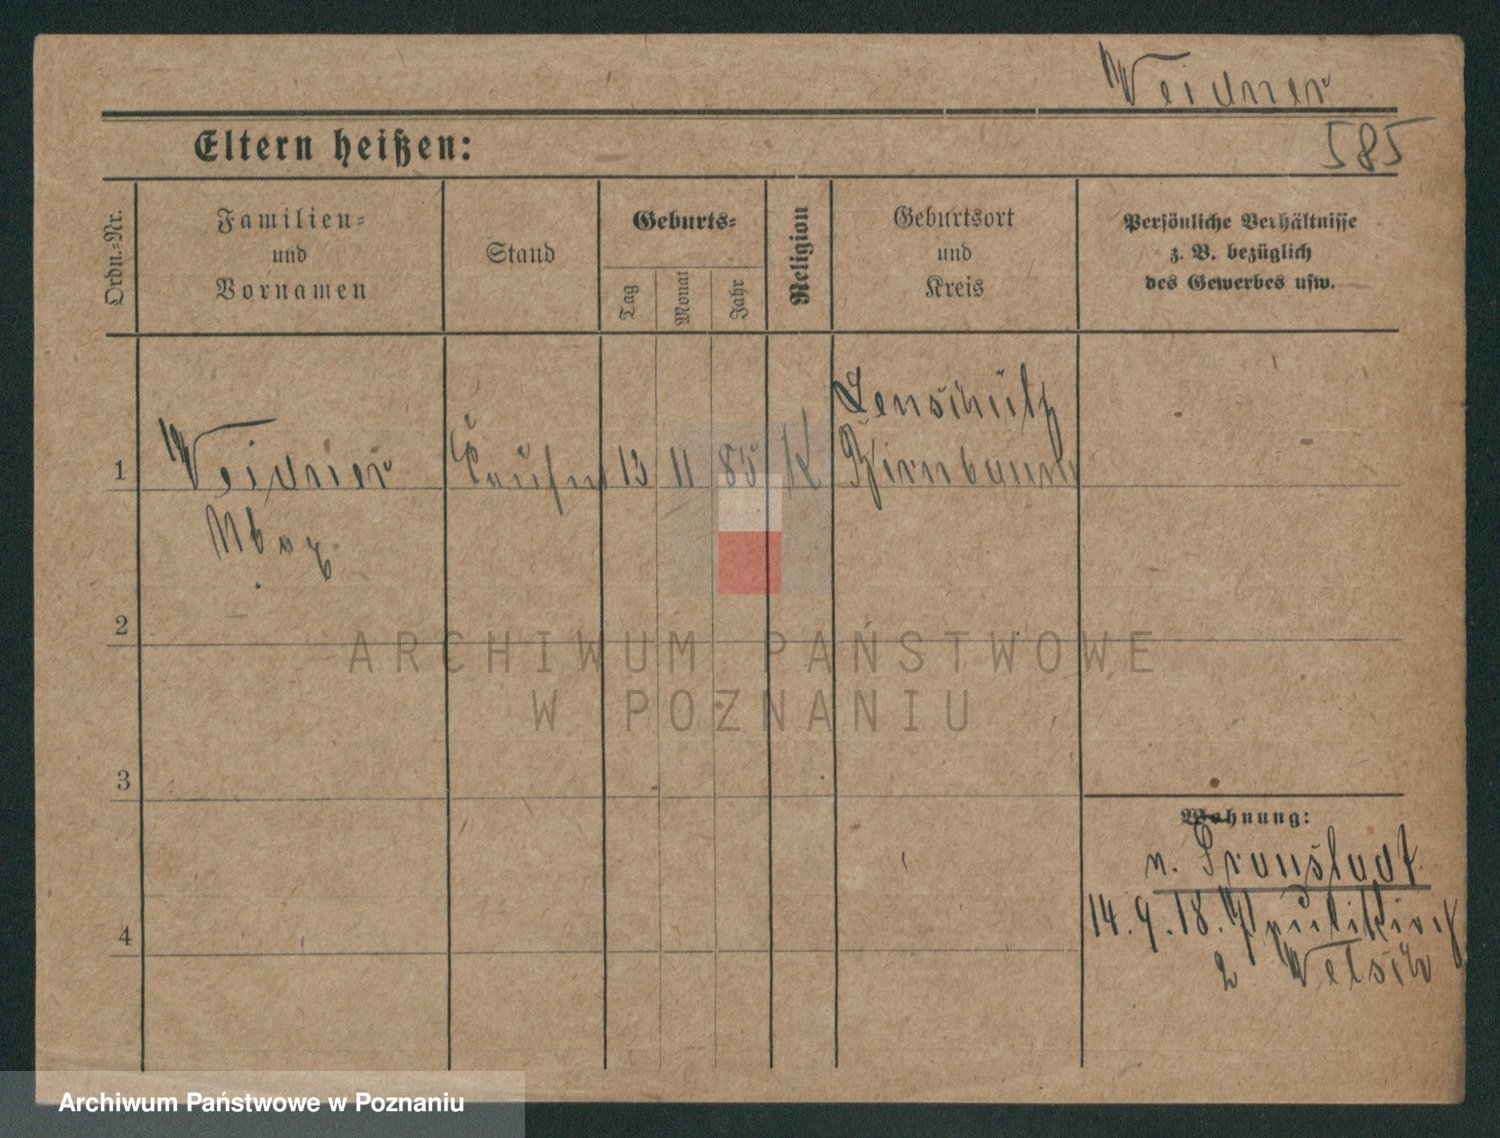 Weidner
Eltern heißen:
585
Ordn.-Nr.
Familien-
und
Vornamen
Stand
Geburts-
Tag
Monat
Jahr
Religion
Geburtsort
und
Kreis
Persönliche Verhältnisse
z. B. bezüglich
des Gewerbes usw.
1
Weidner
13
11
85
K
Birnbaum
2
ARCHIWUM PAŃSTWOWE
W POZNANIU
3
Wohnung:
n. Fraustadt
14.9.18.
4
2
Archiwum Państwowe w Poznaniu